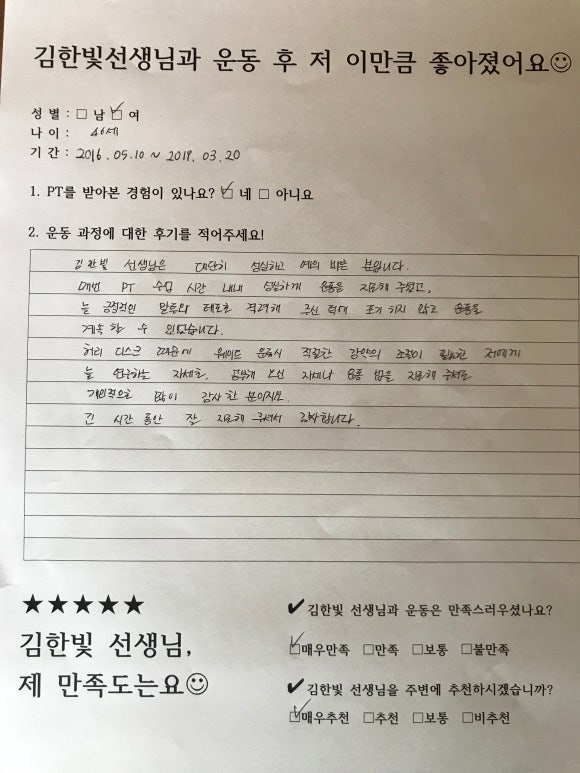 김한빛선생님과 운동 후 저 이만큼 좋아졌어요☺
성 별 : □ 남 ☑ 여
나 이 : 46세
기 간 : 2016.05.10 ~ 2019.03.20
1. PT를 받아본 경험이 있나요? ☑ 네 □ 아니요
2. 운동 과정에 대한 후기를 적어주세요!
김한빛 선생님은 대단히 성실하고 예의 바른 분입니다.
매번 PT 수업 시간 내내 성실하게 운동을 지도해 주셨고,
늘 긍정적인 말투와 태도로 격려해 주신 덕에 포기 하지 않고 운동을
계속 할 수 있었습니다.
허리 디스크 때문에 웨이트 운동시 적절한 강약의 조절이 필요한 저에게
늘 연구하는 자세로, 공부해 오신 자세나 운동 법을 지도해 주셔서
개인적으로 많이 감사한 분이지요.
긴 시간 동안 잘 지도해 주셔서 감사합니다.
★★★★★
김한빛 선생님,
제 만족도는요☺
✔김한빛 선생님과 운동은 만족스러우셨나요?
☑매우만족 □만족 □보통 □불만족
✔김한빛 선생님을 주변에 추천하시겠습니까?
☑매우추천 □추천 □보통 □비추천